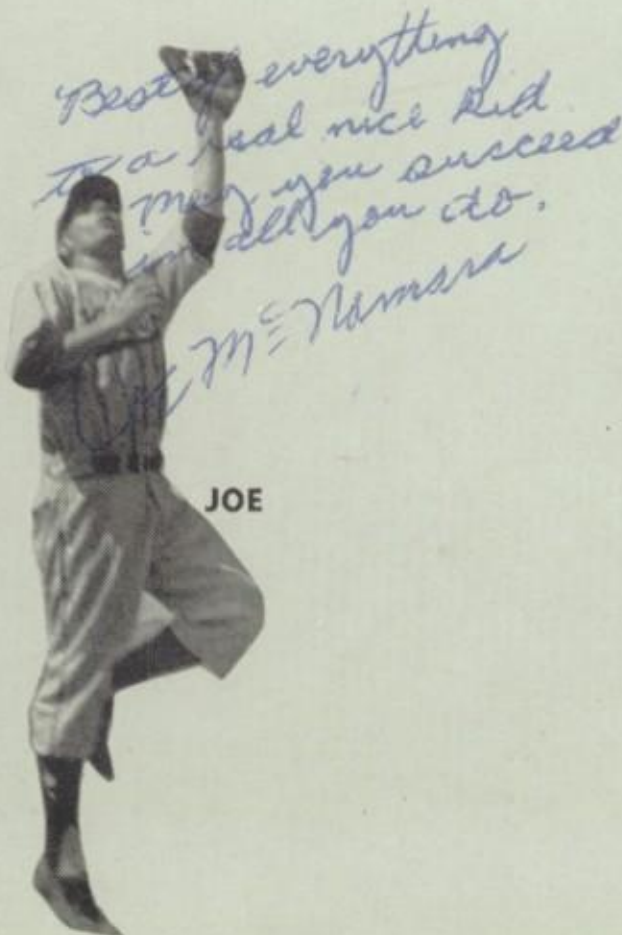 Best of everything
to a real nice kid
May you succeed
in all you do.
Joe McNamara
JOE